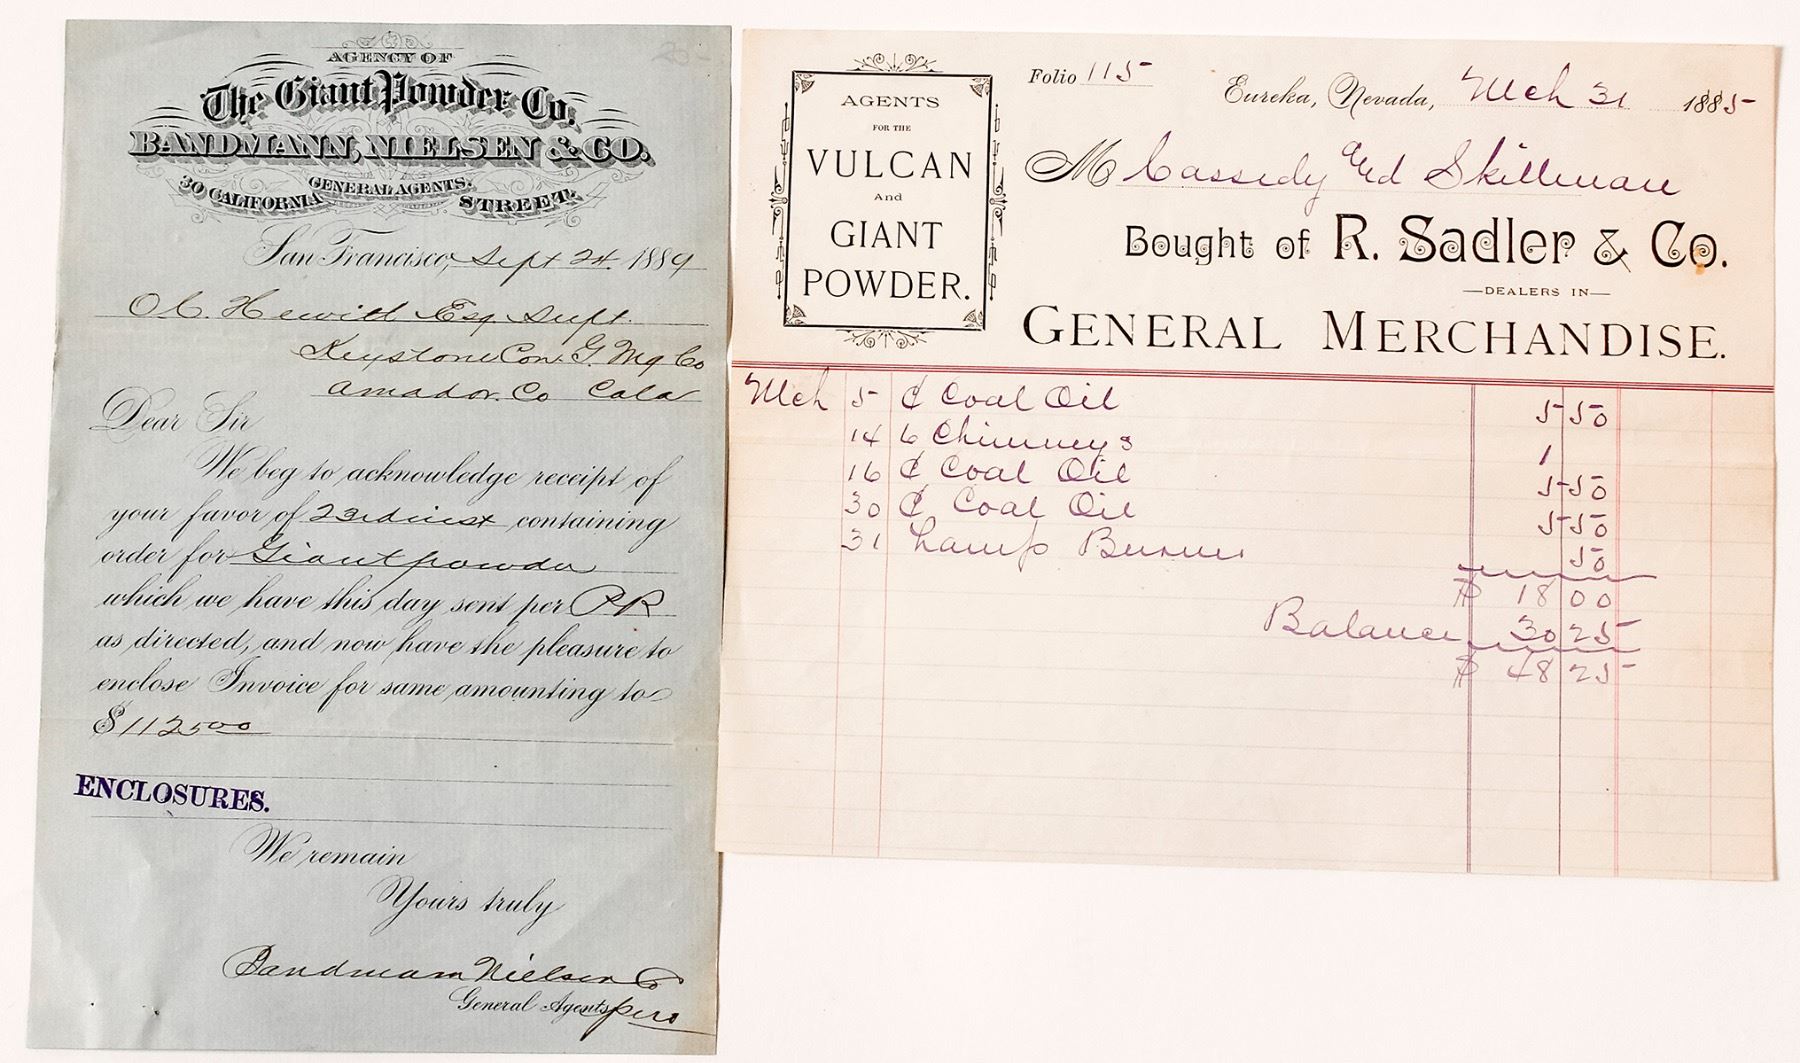 AGENCY OF
The Giant Powder Co.
BANDMANN, NIELSEN & CO.
GENERAL AGENTS.
30 CALIFORNIA STREET.
San Francisco, Sept 24. 1889
O C. Hewitt Esq. Supt.
Keystone Con. G. Mg Co
Amador. Co Cala
Dear Sir
We beg to acknowledge receipt of
your favor of 23rd inst containing
order for Giant powder
which we have this day sent per RR
as directed, and now have the pleasure to
enclose Invoice for same amounting to
$ 112 50 00
ENCLOSURES.
We remain
Yours truly
Bandmann Nielsen Co
General Agents
AGENTS
FOR THE
VULCAN
And
GIANT
POWDER.
Folio 115
Eureka, Nevada, Mch 31 1885
M Cassidy and Skillman
Bought of R. Sadler & Co.
—DEALERS IN—
GENERAL MERCHANDISE.
Mch 5 ¢ Coal Oil 5 50
14 6 Chimneys 1
16 ¢ Coal Oil 5 50
30 ¢ Coal Oil 5 50
31 Lamp Burner 50
$ 18 00
Balance 30 25
$ 48 25